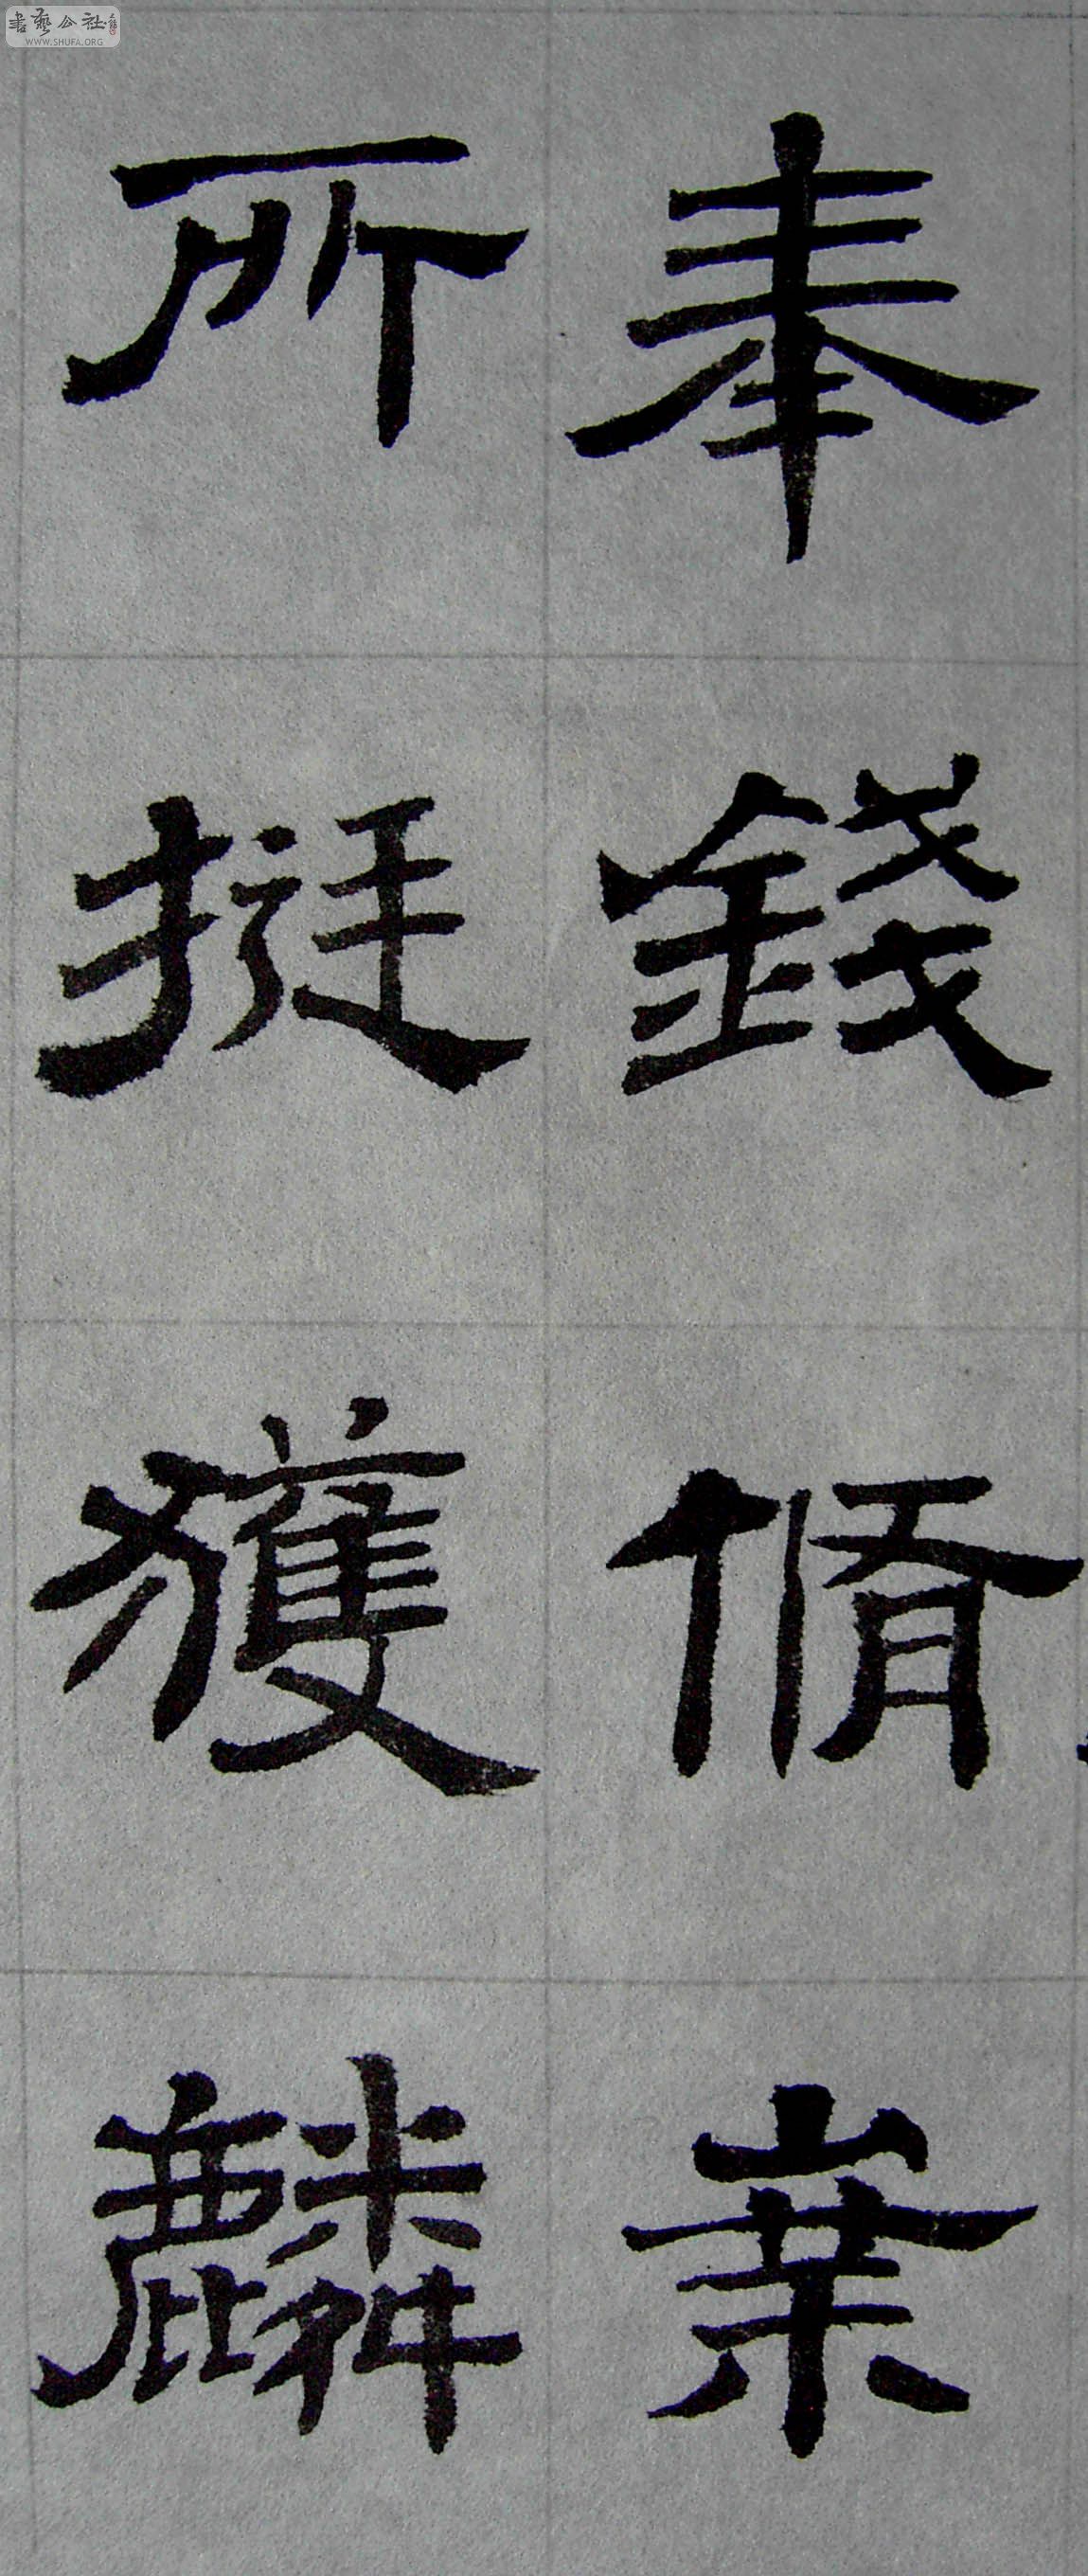 書藝公社
WWW.SHUFA.ORG
奉錢脩業
所挺獲麟